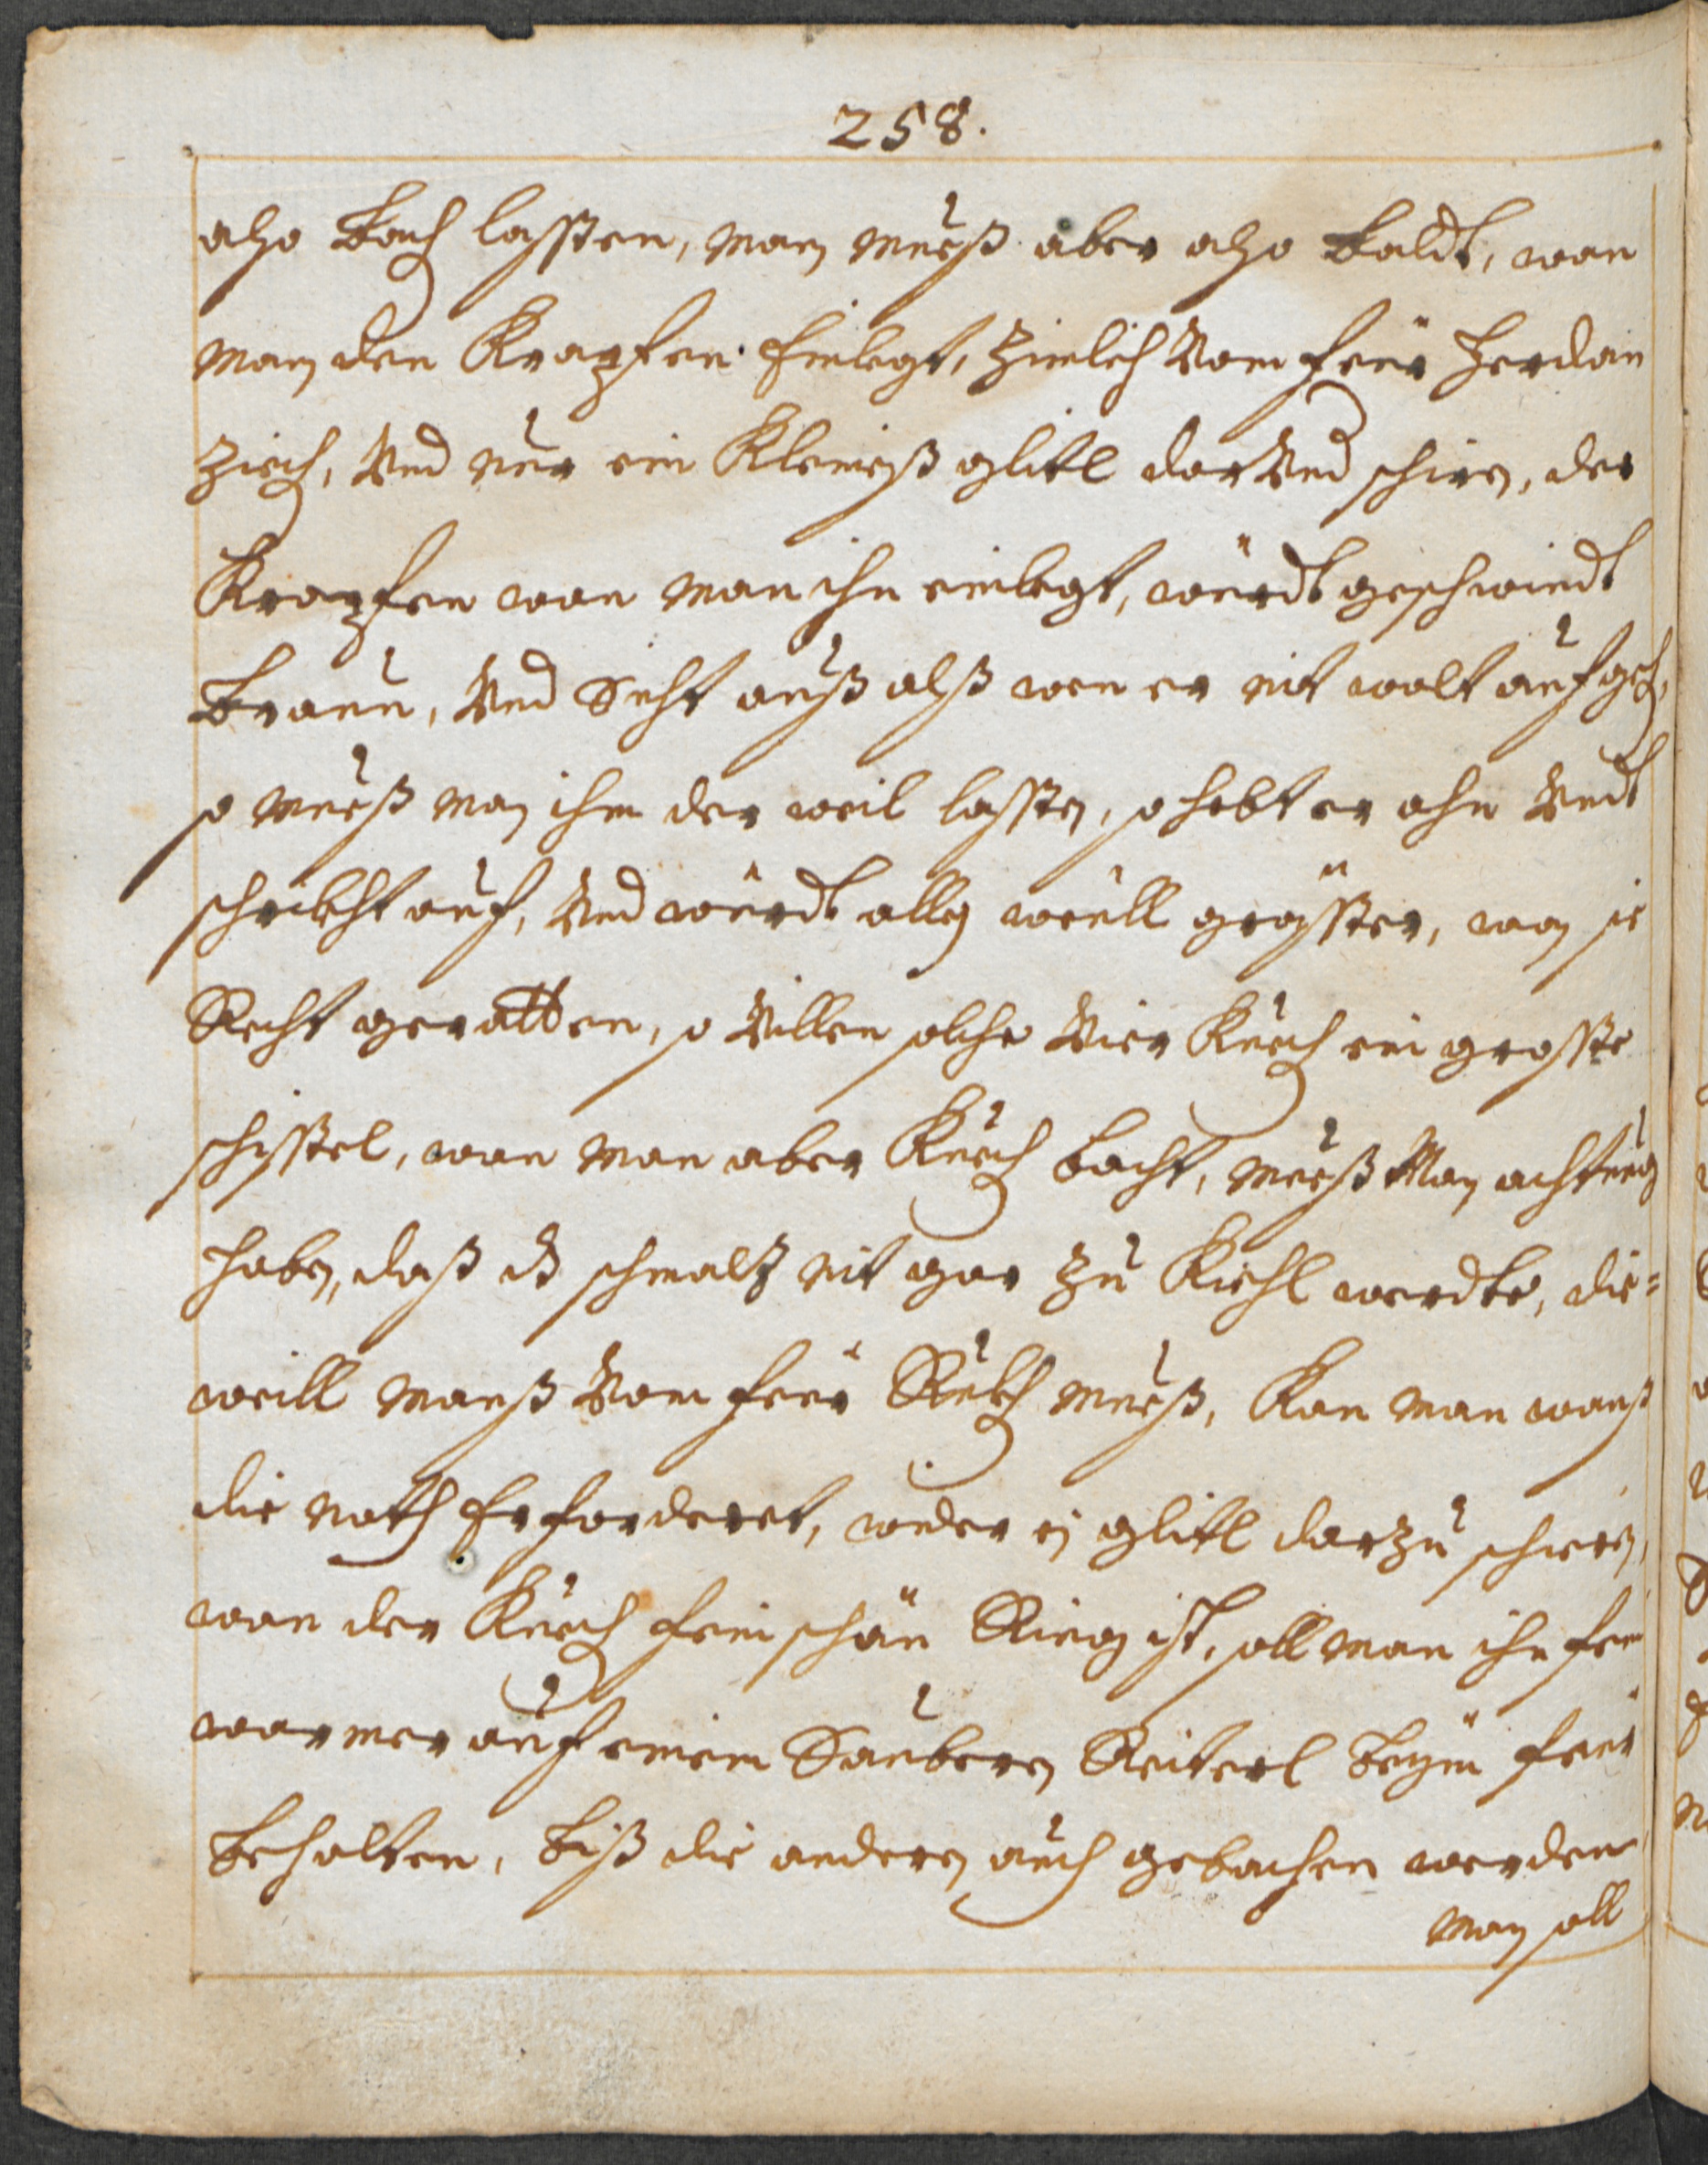 258.
also bach lassen, man mueß aber also baldt, wan
man den Krapfen Einlegt, zimlich vom feür herdan
ziech, Vnd nur ein Kleineß glitl dar Vnd schiren, der
Krapfen wan man ihn einlegt, würdt geschwindt
braun, Vnd Seht auß alß wen er nit wolt aufgeh,
so mueß man ihm der weil lassen, so hebt er ahn Vndt
schricht auf, Vnd würdt alleß weill grösser, wan sie
Recht geratten, so Villen solche Vier Kuech ein grosse
schissel, wan man aber Kuech bacht, mueß Man achtung
haben, daß dß schmaltz nit gar zu Kiehl werdte, die=
weill manß vom feür Rukh mueß, Kan man wanß
die noth Erforderet, wider ein glitl darzu schiren,
wan der Kuech fein schön Ring ist, soll man ihn fein
warmer auf einem Sauberen Reiterl beym feür
behalten, biß die anderen auch gebachen werden
man soll